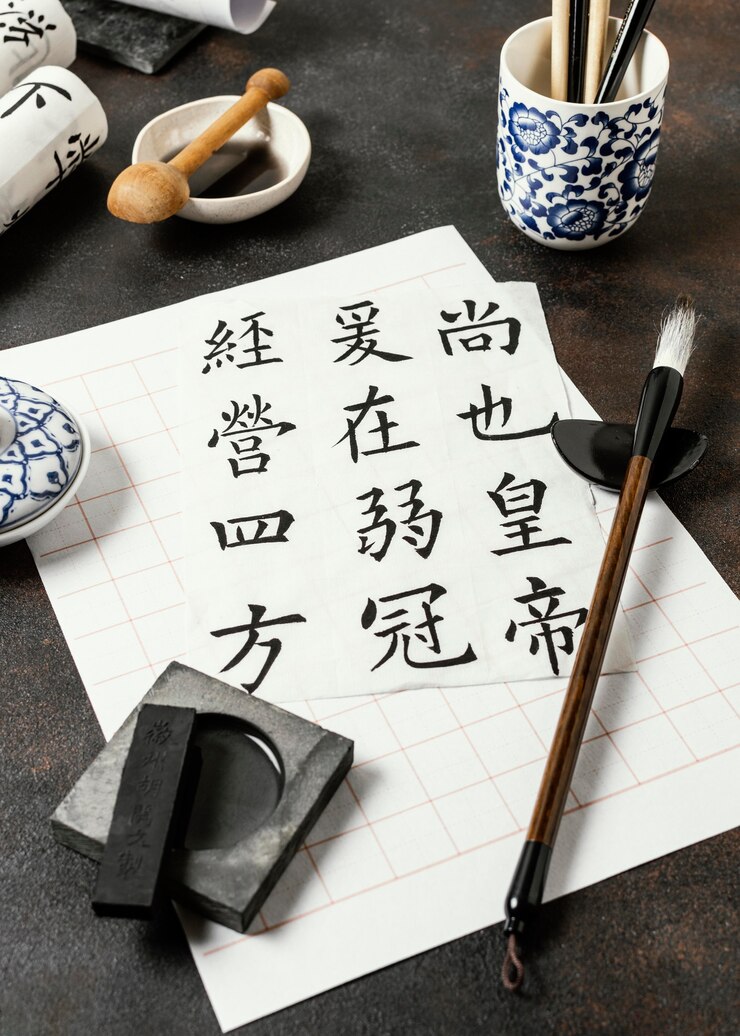 尚也皇帝
爰在弱冠
經營四方
徽州胡開文製